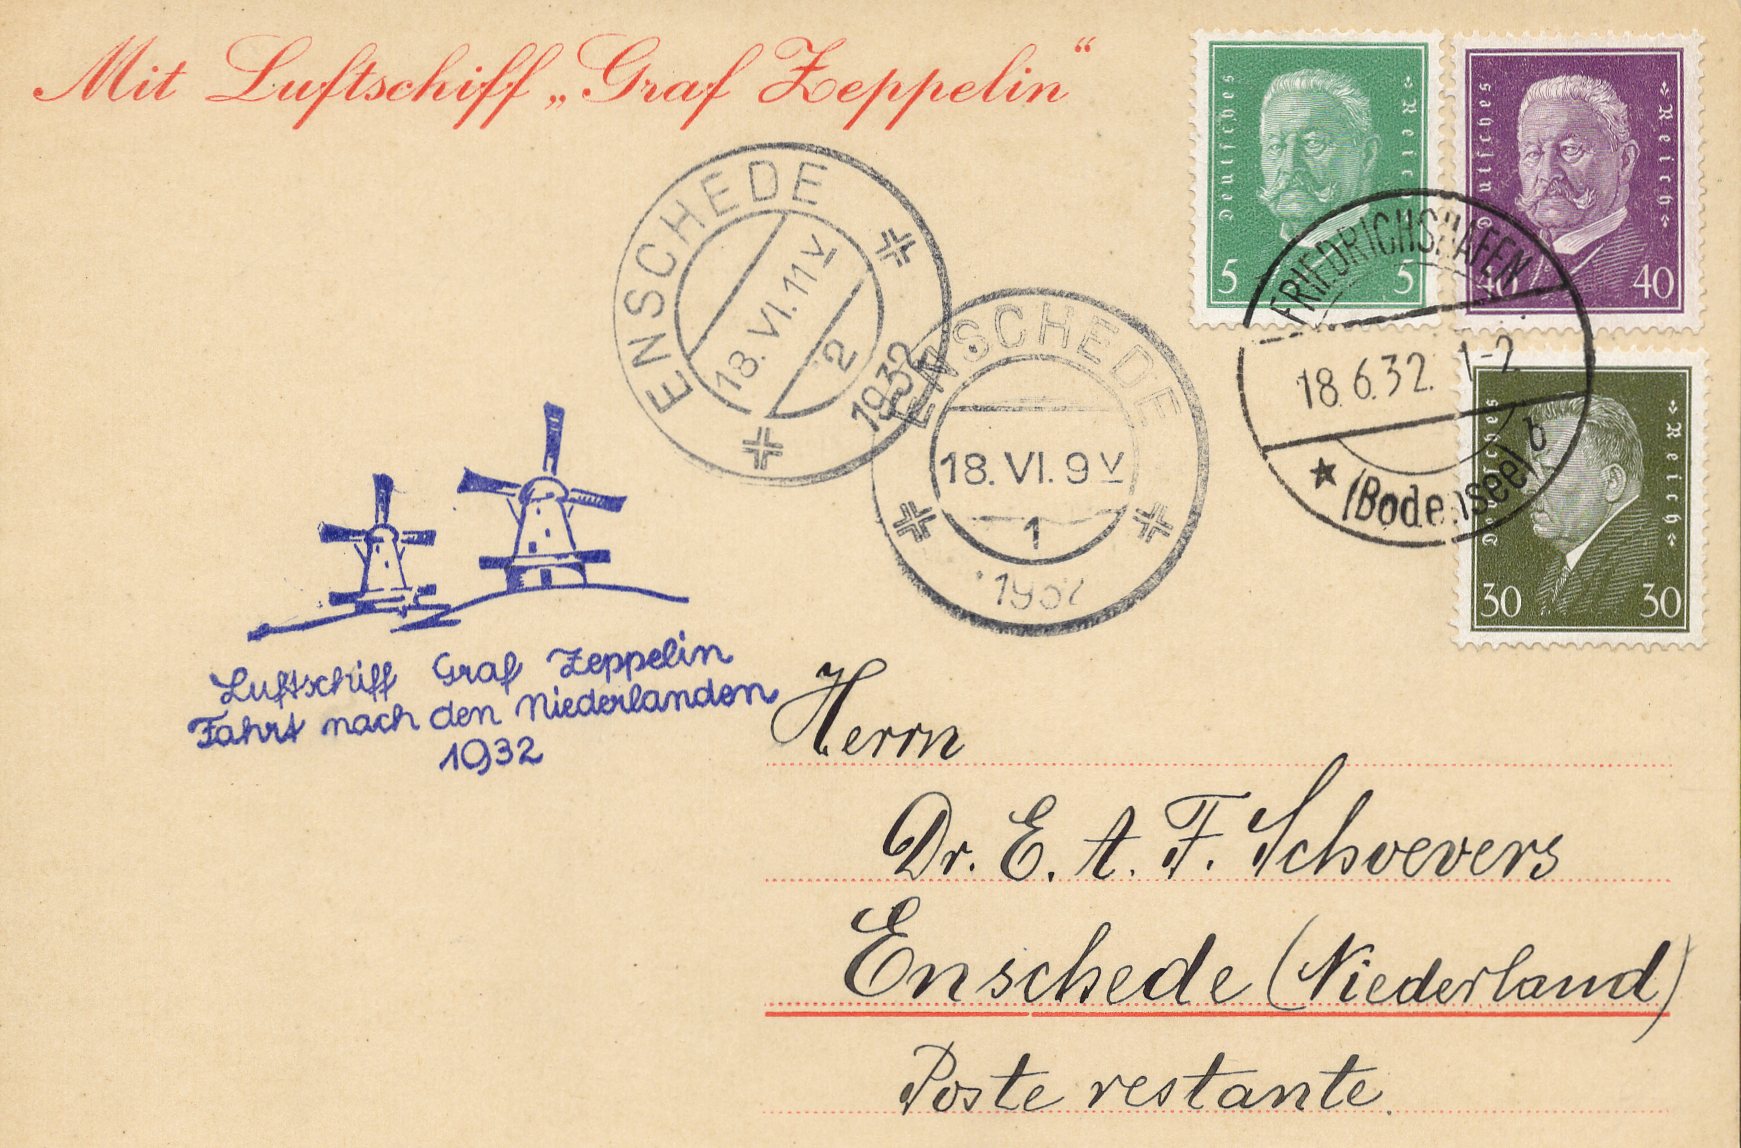 Mit Luftschiff „Graf Zeppelin“
Deutsches Reich
5 5
Deutsches Reich
40 40
Deutsches Reich
30 30
FRIEDRICHSHAFEN
18.6.32. 1-2
b
(Bodensee)
ENSCHEDE
18.VI.11V
2
1932
ENSCHEDE
18.VI.9V
1
1932
Luftschiff Graf Zeppelin
Fahrt nach den Niederlanden
1932
Herrn
Dr. E. A. F. Schoevers
Enschede (Niederland)
Poste restante.